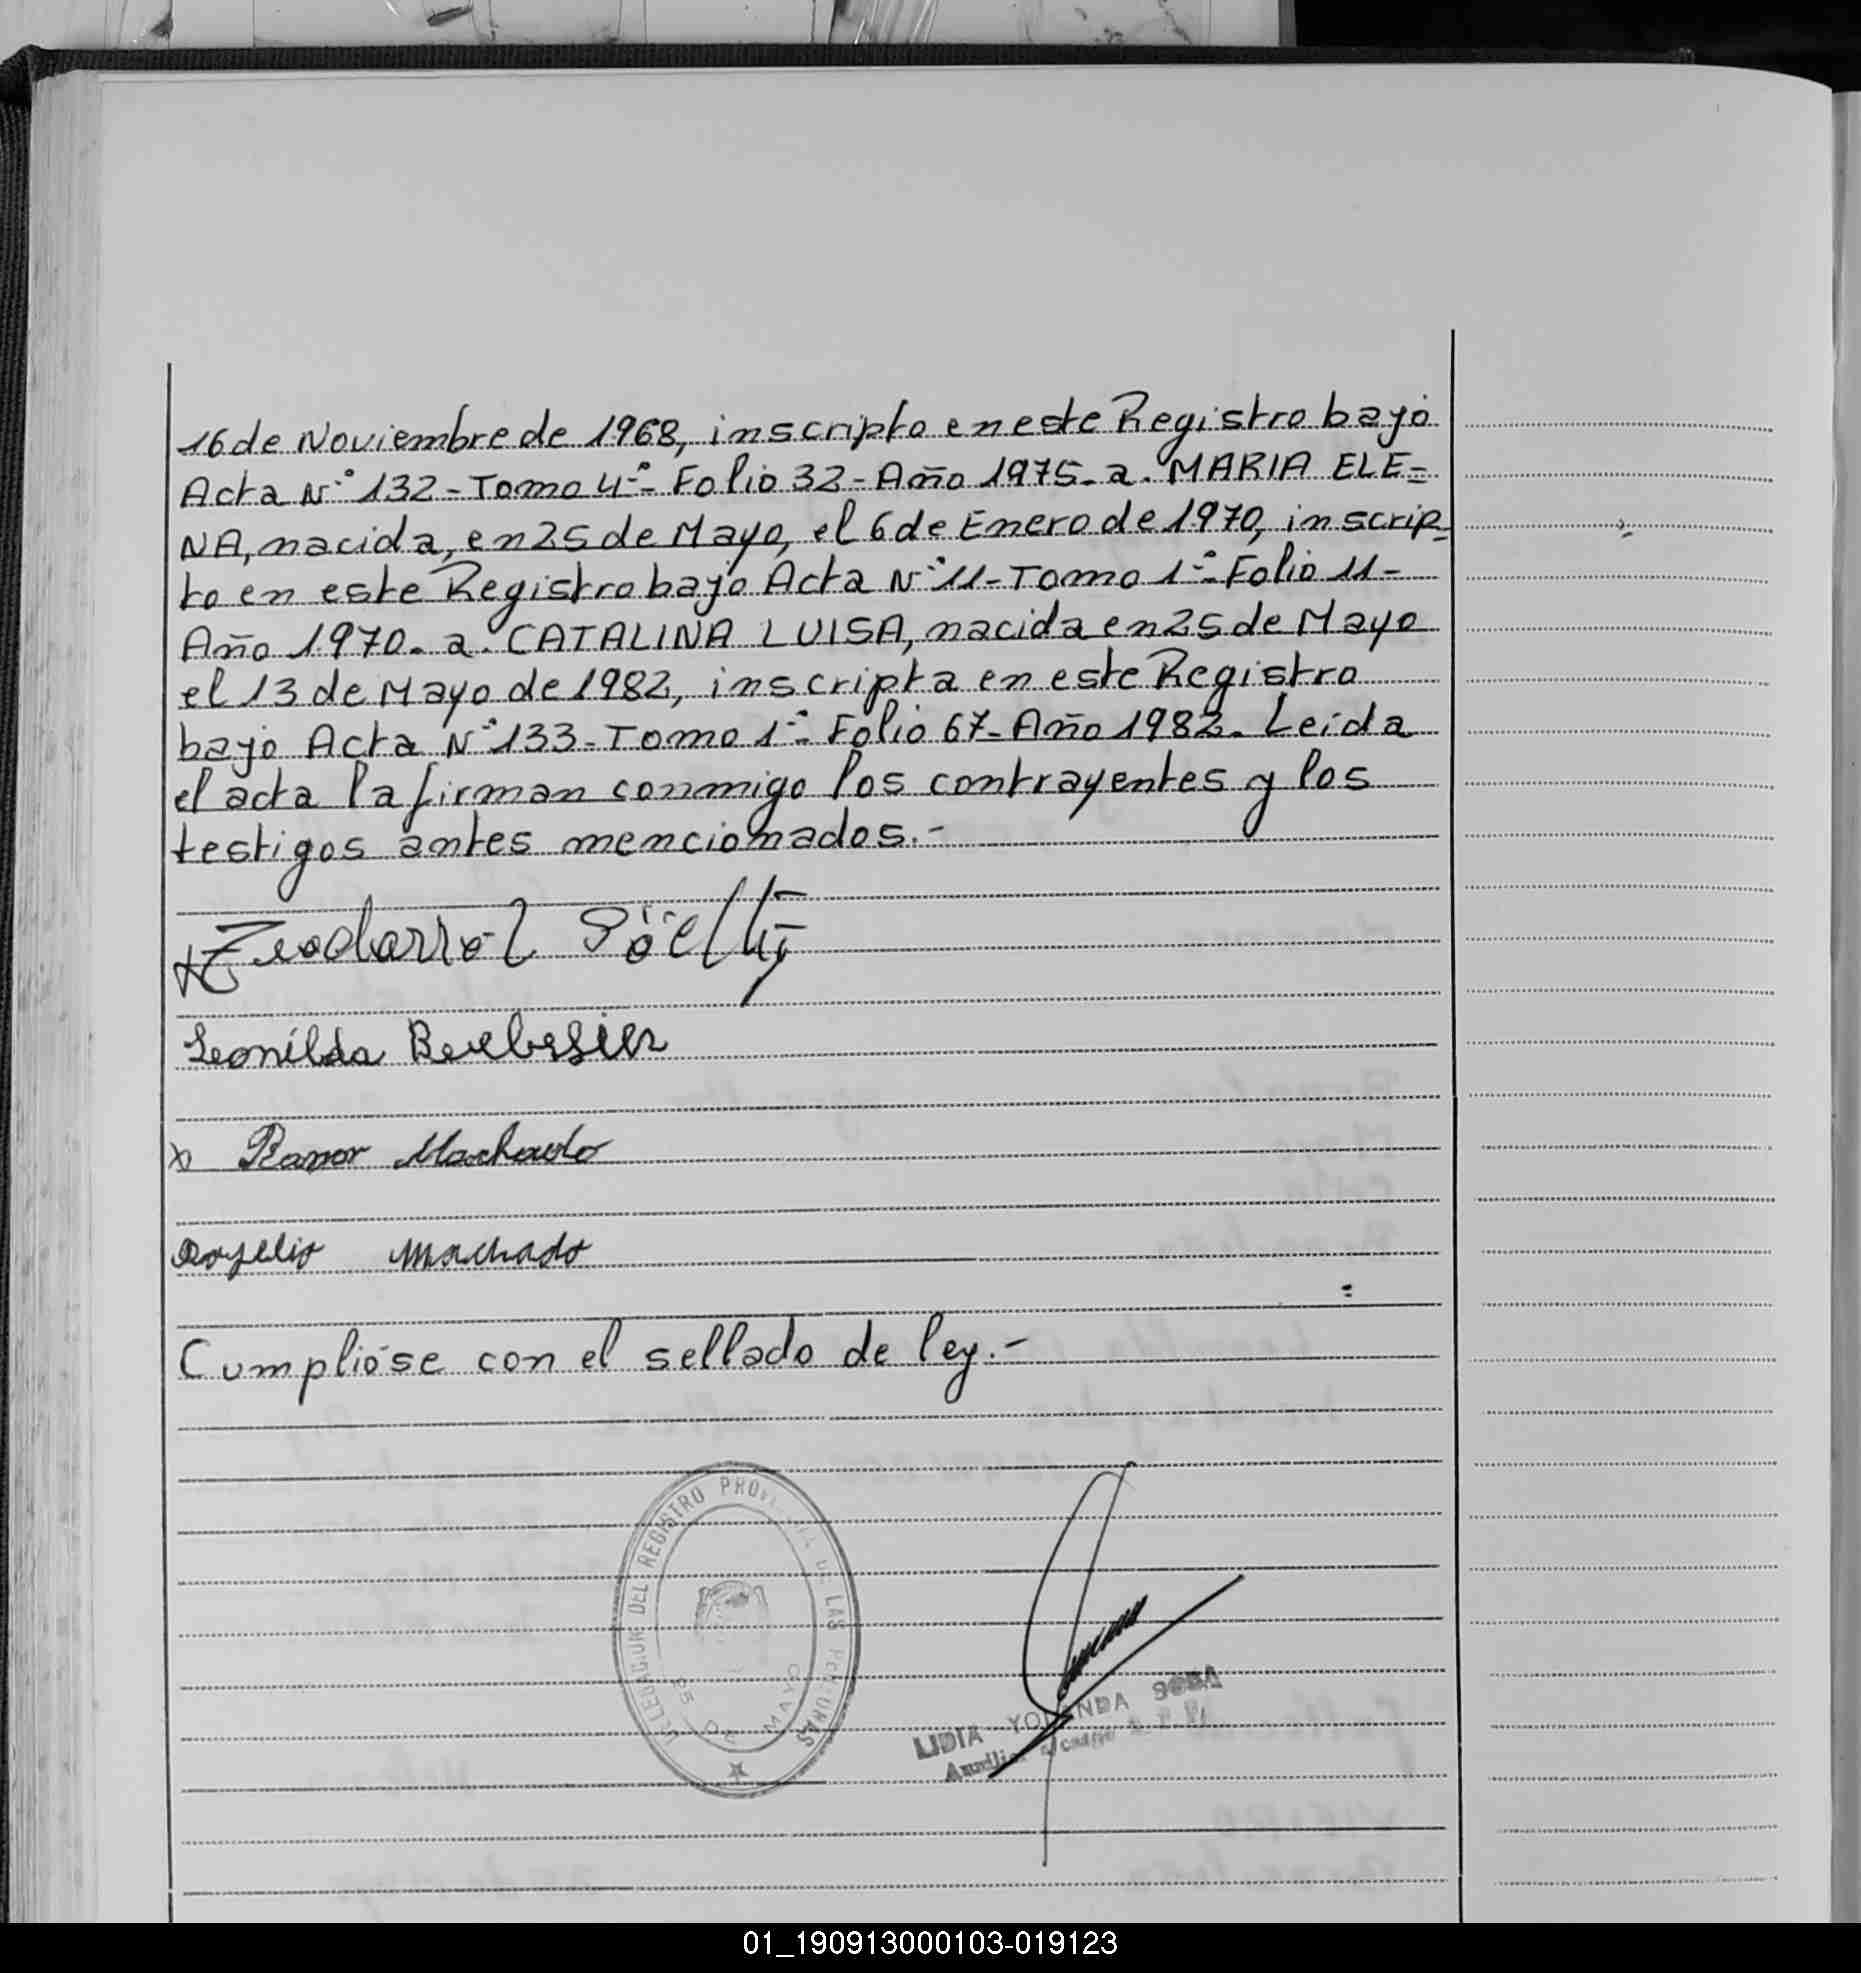 16 de Noviembre de 1968, inscripto en este Registro bajo
Acta N° 132 - Tomo 4° - Folio 32 - Año 1975. a. MARIA ELE=
NA, nacida, en 25 de Mayo, el 6 de Enero de 1970, inscrip-
to en este Registro bajo Acta N° 11 - Tomo 1° - Folio 11 -
Año 1970. a. CATALINA LUISA, nacida en 25 de Mayo
el 13 de Mayo de 1982, inscripta en este Registro
bajo Acta N° 133 - Tomo 1° - Folio 67 - Año 1982. Leida
el acta la firman conmigo los contrayentes y los
testigos antes mencionados.-
Leonilda
Ramor Machado
Rogelio Machado
Cumplióse con el sellado de ley.-
DEL REGISTRO PROVINCIAL DE LAS PERSONAS
25 DE MAYO
LIDIA YOLANDA
01_190913000103-019123